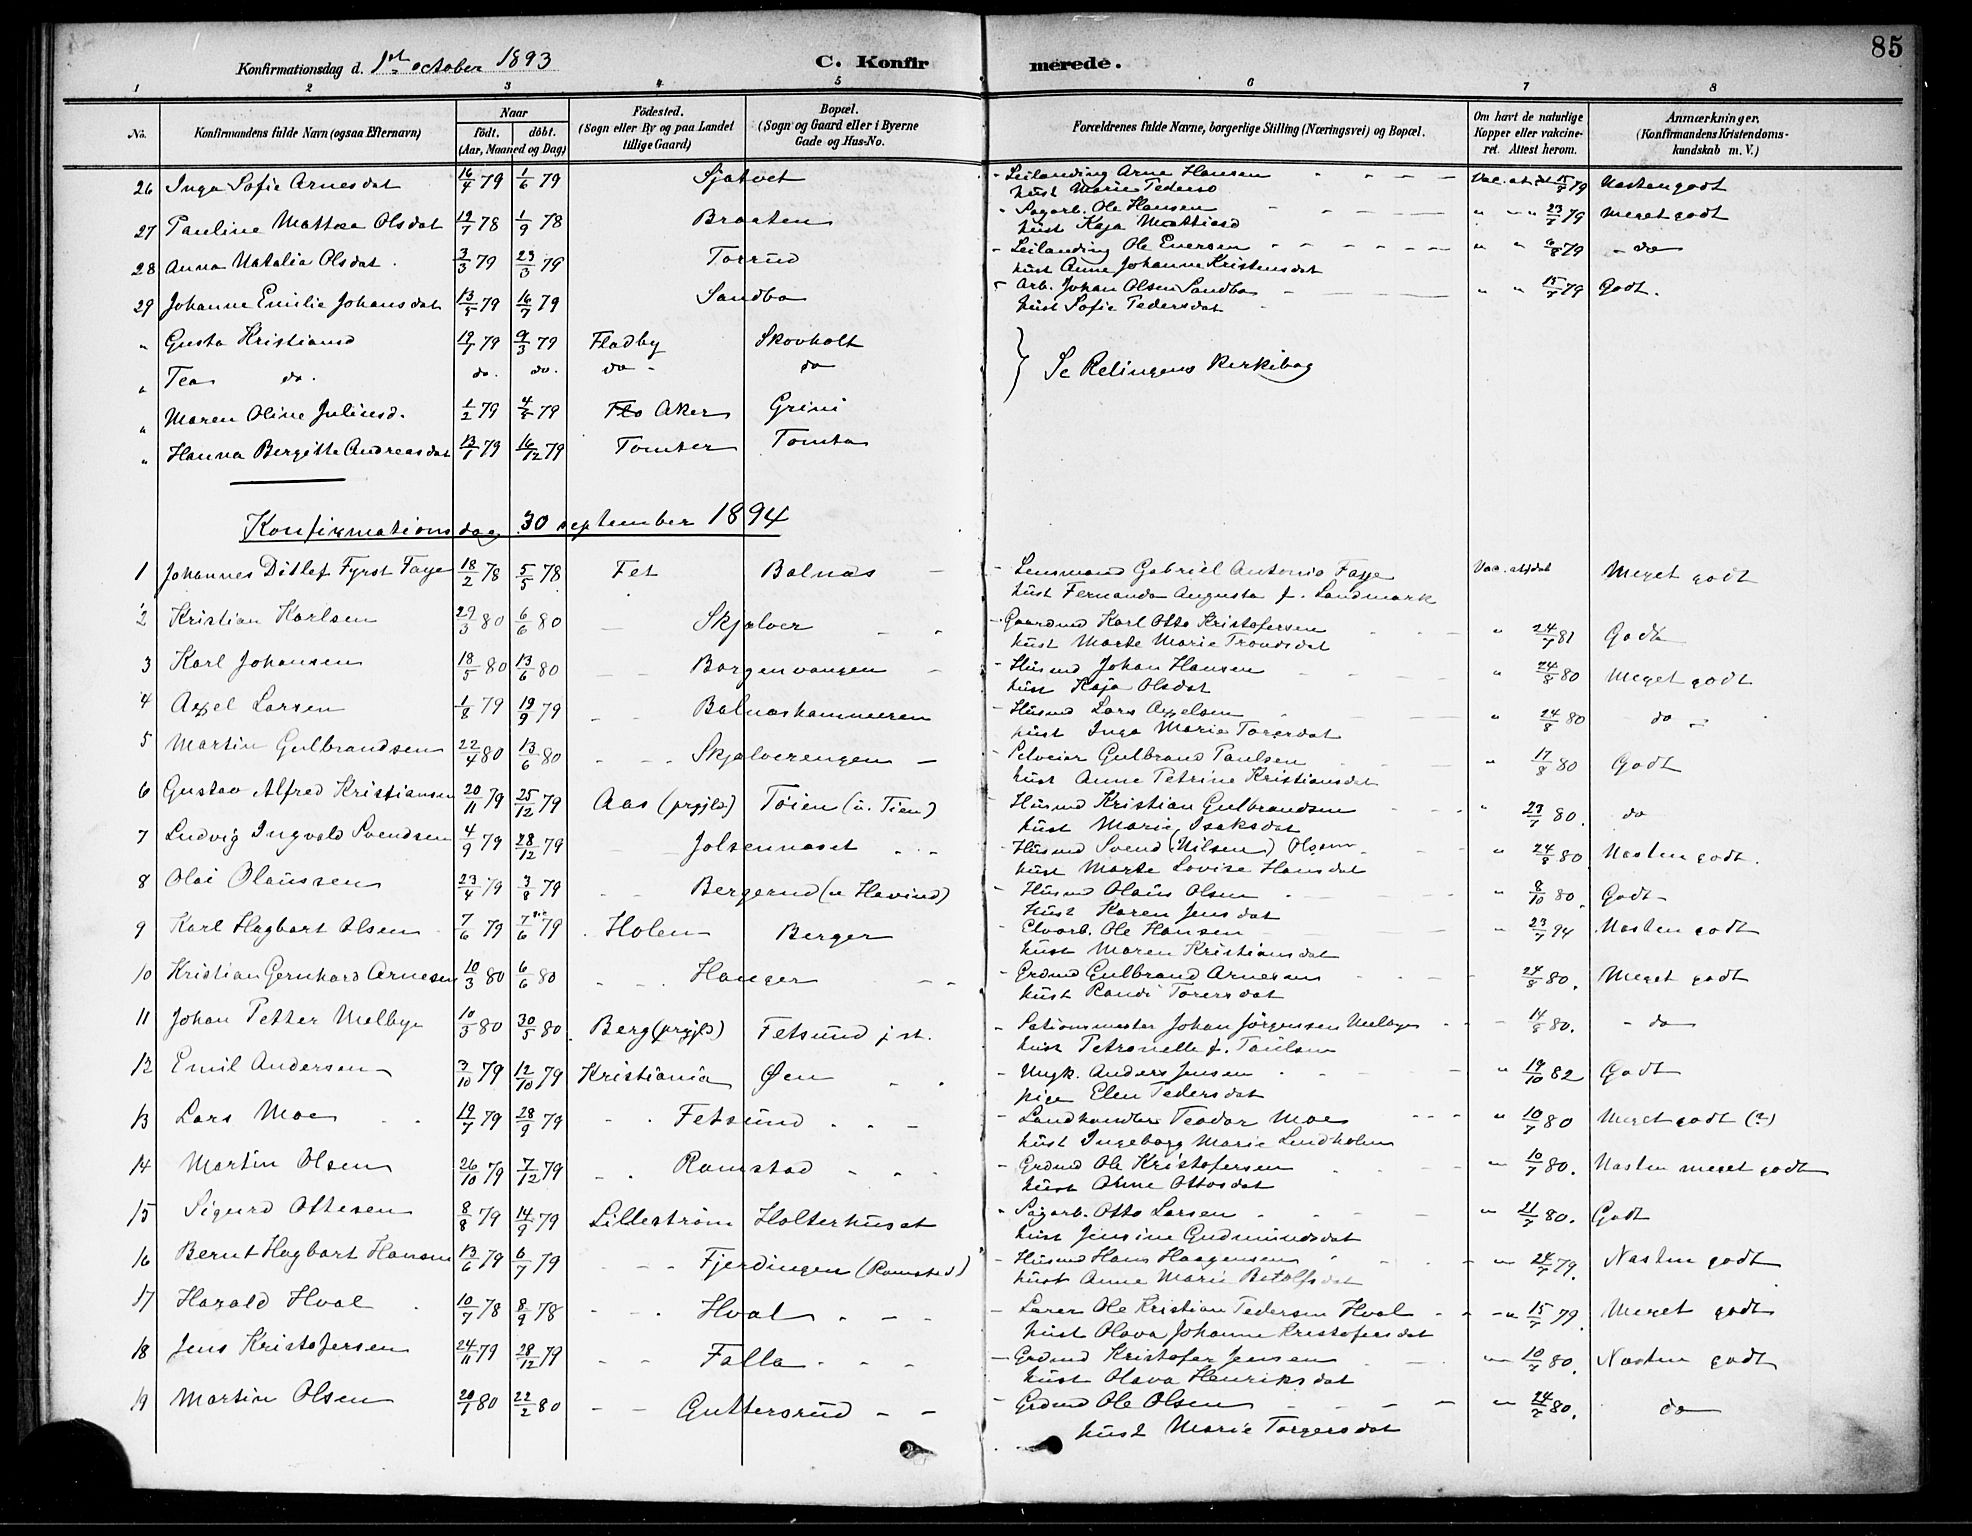 85
Konfirmationsdag d. 1st october 1893 C. Konfir merede.
1 2 3 4 5 6 7 8
No. Konfirmandens fulde Navn (ogsaa Efternavn) Naar født. døbt. (Aar, Maaned og Dag) Födested. (Sogn eller By og paa Landet tillige Gaard) Bopæl. (Sogn og Gaard eller i Byerne Gade og Hus-No. Forældrenes fulde Navne, borgerlige Stilling (Næringsvei) og Bopæl. Om havt de naturlige Kopper eller vakcineret. Attest herom. Anmærkninger. (Konfirmandens Kristendomskundskab m. V.)
26 Inga Sofie Arnesdat 16/4 79 1/6 79 Sjatvet Leilænding Arne Hansen Vac. at. dat 15/7 79 Næsten godt
hust Marie Pedersd
27 Pauline Mattea Olsdat 19/7 78 1/9 78 Braaten Sagarb. Ole Hansen " " " 23/7 79 Meget godt
hust Kaja Mattiasd
28 Anna Natalia Olsdat 3/3 79 23/3 79 Torrud Leilænding Ole Evensen " " 6/8 79 - do
hust Anne Johanne Kristensdat
29 Johanne Emilie Johansdat 13/5 79 16/7 79 Sandbæ Arb. Johan Olsen Sandba " " 15/7 79 Godt.
hust Sofie Pedersdat
" Gusta Kristiansd 19/1 79 9/3 79 Fladby Skovholt
" Tea do. do. do. do - do } Se Relingens Kirkebog
" Maren Oline Juliusd. 1/2 79 4/8 79 Flo Aker Grini
" Hanna Bergitte Andreasdat 13/1 79 16/12 79 Tomter Tomta
Konfirmationsdag 30 september 1894
1 Johannes Ditlef Fyrst Faye 18/2 78 5/5 78 Fet Balnæs - Lensmand Gabriel Antonio Faye Vac. attdat Meget godt
hust Fernanda Augusta f. Landmark
2 Kristian Karlsen 29/3 80 6/6 80 - Skjalver Gaardmd Karl Otto Kristofersen " 24/7 81 Godt
hust Marte Marie Trondsdat
3 Karl Johansen 18/5 80 13/6 80 - - Borgenvangen - Husmd Johan Hansen " 24/8 80 Meget godt
hust Kaja Olsdat
4 Axel Larsen 1/8 79 19/9 79 Balnæskammeren Husmd Lars Axelsen " 24/8 80 do -
hust Inga Marie Torersdat
5 Martin Gulbrandsen 22/4 80 13/6 80 Skjalverengen - Selveier Gulbrand Paulsen " 17/8 80 Godt
hust Anne Petrine Kristiansdat
6 Gustav Alfred Kristiansen 20/11 79 25/12 79 Aas (prgjld) Tøien (u. Tien) Husmd Kristian Gulbrandsen " 23/7 80. do
hust Marie Isaksdat
7 Ludvig Ingvald Svendsen 4/9 79 28/12 79 Jølsennæset Husmd Svend (Nilsen) Olsen " 24/8 80 Næsten godt.
hust Marte Lovise Hansdat
8 Olai Olaussen 23/4 79 3/8 79 Bergerud (u Hovind) Husmd Olaus Olsen " 8/10 80. Godt
Hust Karen Jensdat
9 Karl Hagbart Olsen 7/6 79 7/6 79 Holen Berger Elvarb. Ole Hansen " 23/7 94 Næsten godt
hust Maren Kristiansdat
10 Kristian Gernhard Arnesen 10/3 80 6/6 80 Hanger Grdmd Gulbrand Arnesen 24/8 80. Meget godt
hust Randi Torersdat
11 Johan Petter Melbye 10/3 80 30/5 80 Berg (prgjld) Fetsund j st. Sationsmester Johan Jörgensen Melbye 14/8 80. - do
hust Petronelle f. Paulsen
12 Emil Andersen 3/10 79 12/10 79 Kristiania Øen Ungk. Anders Jensen " 19/10 82 Godt
pige Elen Pedersdat
13 Lars Moe 19/7 79 28/9 79 Fetsund Landhandler Teodor Moe " 10/7 80 Meget godt (?)
hust Ingeborg Marie Lindholm
14 Martin Olsen 26/10 79 7/12 79 Ramstad Grdmd Ole Kristofersen " 10/7 80. Næsten meget godt
hust Anne Ottosdat
15 Sigurd Ottesen 8/8 79 14/9 79 Lillestrøm Holterhuset Sagarb. Otto Larsen " 21/7 80. Godt
hust Jensine Gudmundsdat
16 Bernt Hagbart Hansen 13/6 79 6/7 79 Fjerdingen (Ramstad) Husmd Hans Haagensen " 24/7 79. Næsten godt
hust Anne Marie Betolfsdat
17 Harald Hval 10/7 78 8/9 78 Hval Lærer Ole Kristian Pedersen Hval " 15/7 79. Meget godt
hust Olava Johanne Kristofersdat
18 Jens Kristofersen 24/11 79 28/12 79 Falla Grdmd Kristofer Jensen " 10/7 80. Næsten godt
hust Olava Henriksdat
19 Martin Olsen 20/1 80 22/2 80 Guttersrud - - Grdmd Ole Olsen " 24/7 80. do
hust Marie Torgersdat